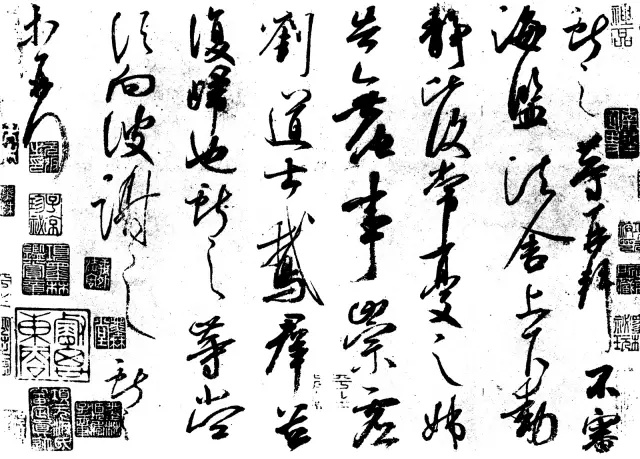 獻之等再拜不審
海鹽諸舍上下動
靜比復常憂之姊
告無他事崇虛
劉道士鵝群並
復歸也獻之等當
須向彼謝之獻之
等再拜
神品